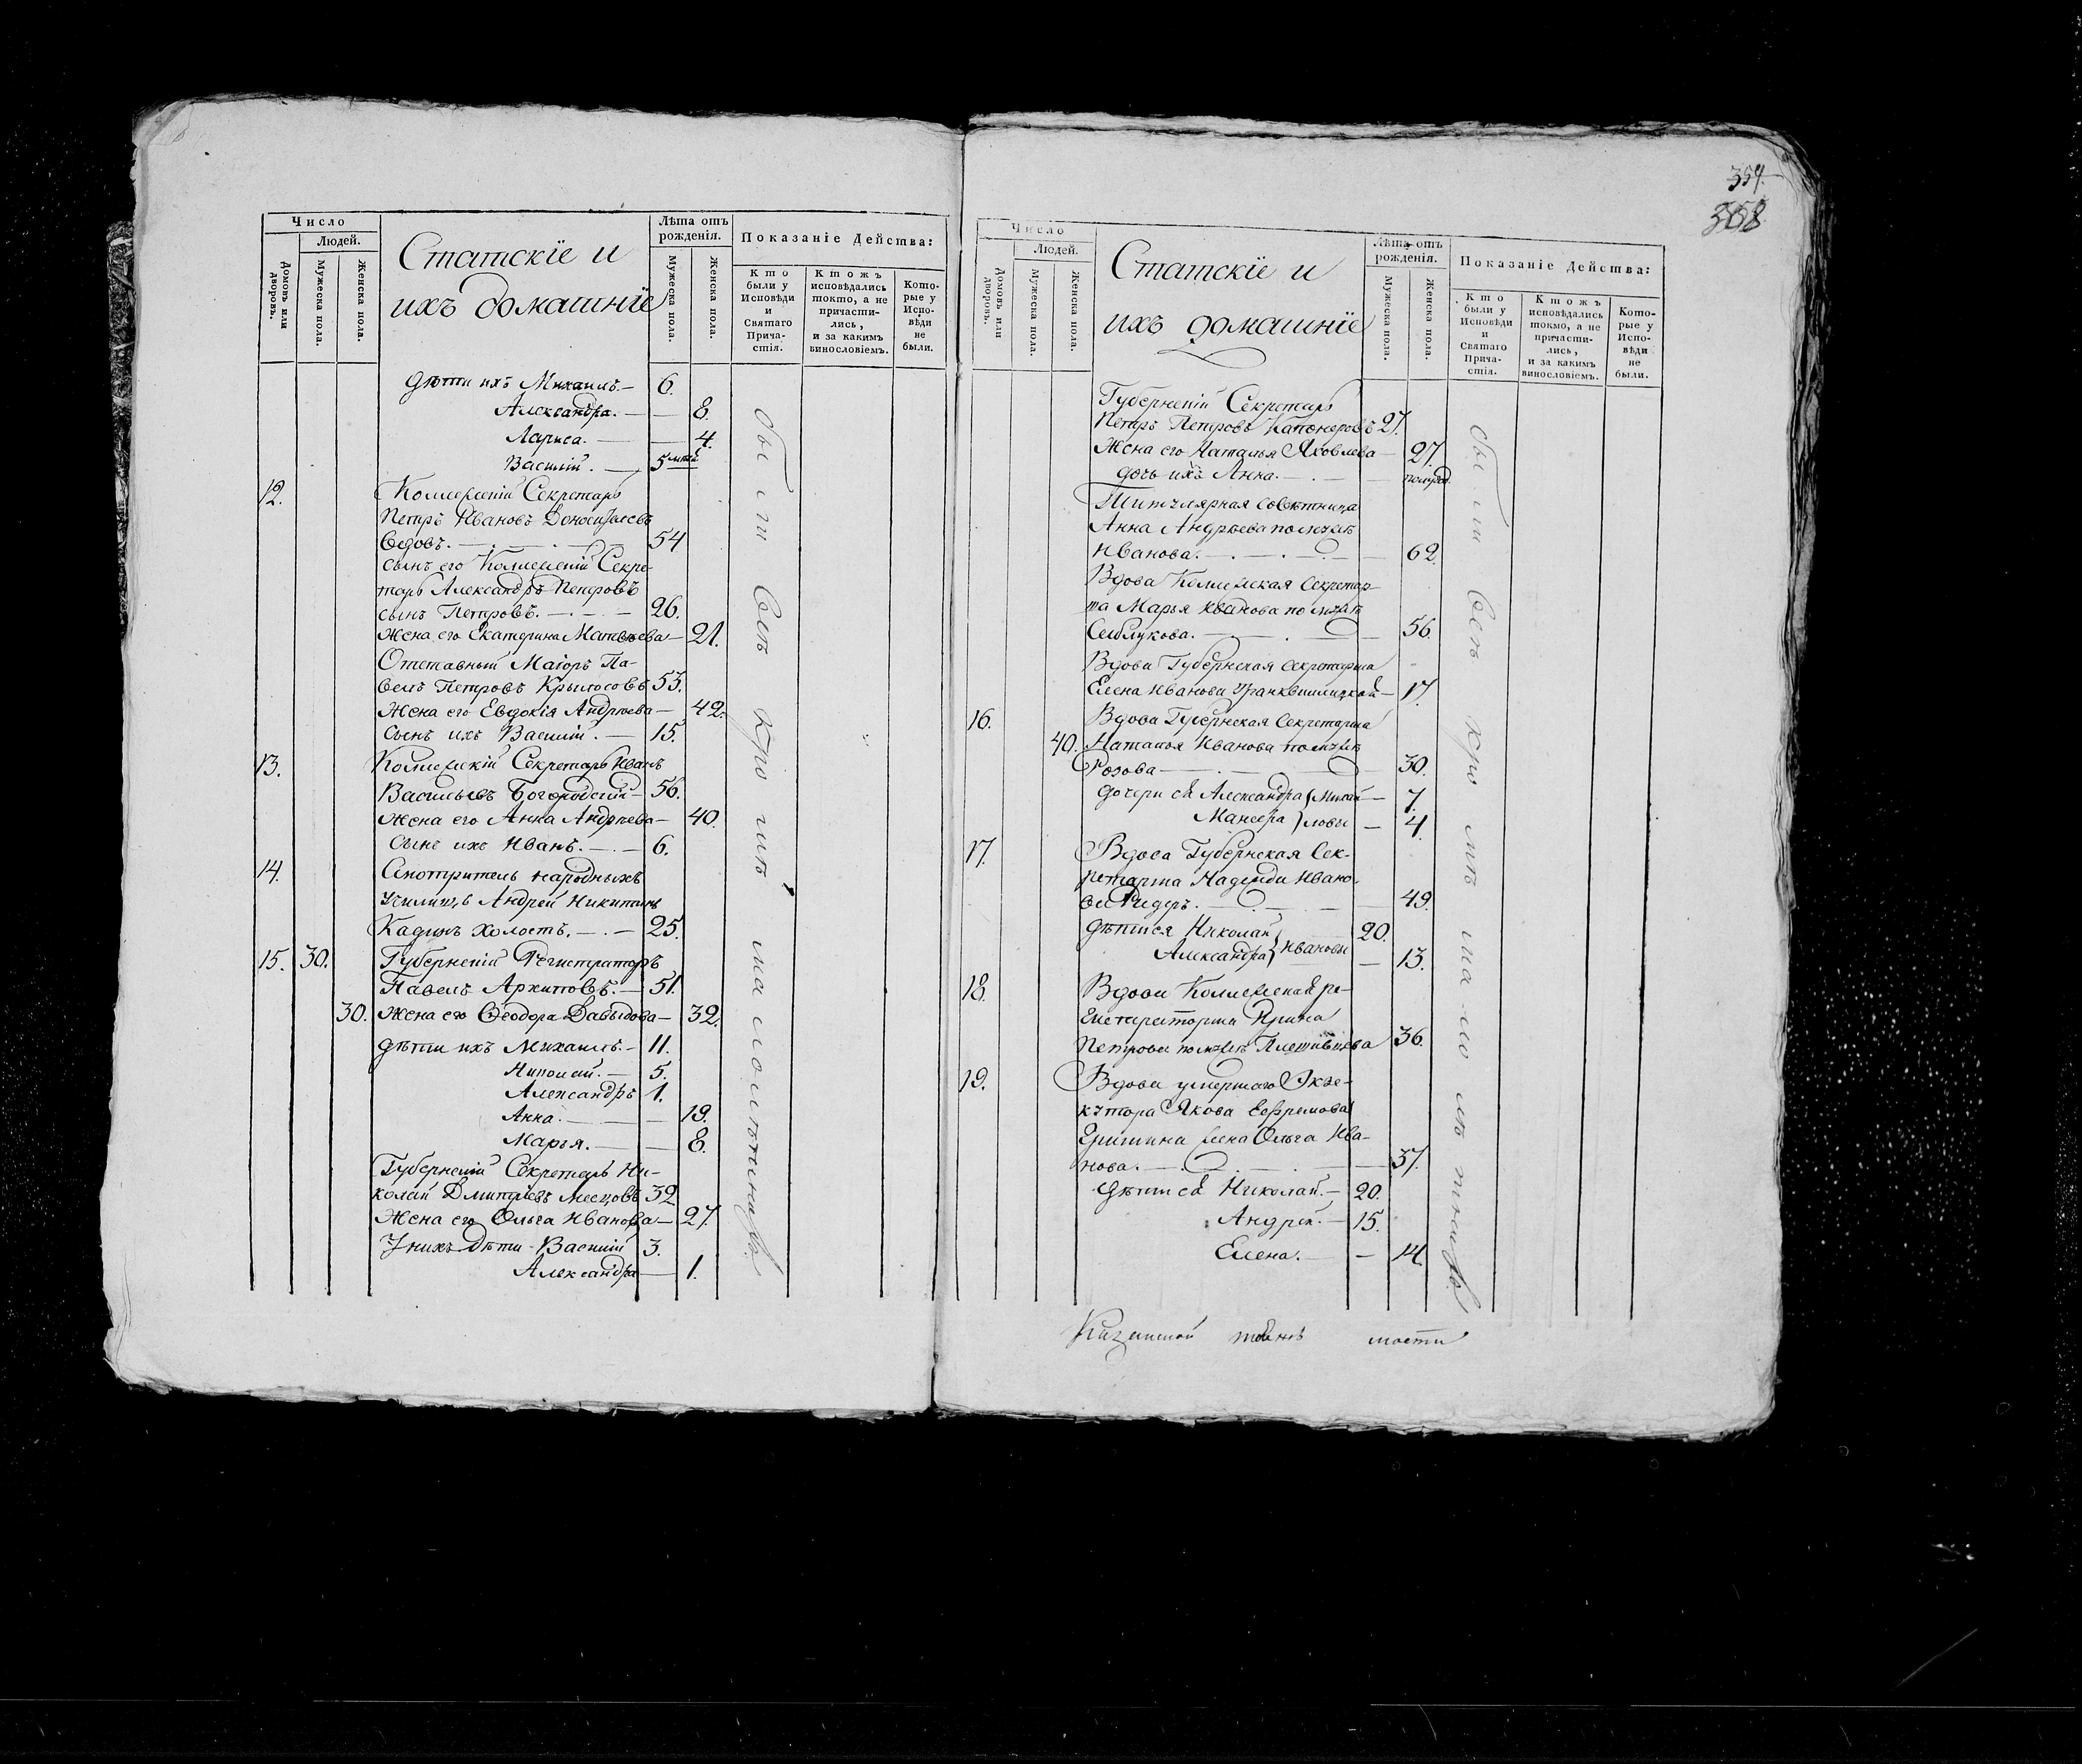 354.
358
Число
Людей.
Домовъ или дворовъ.
Мужеска пола.
Женска пола.
Статскіе и
ихъ домашніе
Лѣта отъ
рожденія.
Мужеска пола.
Женска пола.
Показаніе Действа:
Кто
были у
Исповѣди
и
Святаго
Прича-
стія.
Ктожъ
исповѣдались
токто, а не
причасти-
лись,
и за какимъ
винословіемъ.
Кото-
рые у
Испо-
вѣди
не
были.
дѣти ихъ Михаилъ. — 6.
Александра. — — 8.
Лариса. — — 4.
Василій. — 5
12. Коллежскій Секретарь
Петръ Ивановъ
вдовъ. — 54
сынъ его Коллежскій Секре-
тарь Александръ Петровъ
сынъ Петровъ. — 26.
Жена его Екатерина Матвѣева — 21.
Отставный Маіоръ Па-
велъ Петровъ Крылосовъ 53.
Жена его Евдокія Андрѣева — 42.
Сынъ ихъ Василій. — 15.
13. Коллежскій Секретарь Иванъ
Васильевъ Богородскій — 56.
Жена его Анна Андрѣева — 40.
Сынъ ихъ Иванъ. — 6.
14. Смотритель народныхъ
Училищъ Андрей Никитинъ
Кадинъ холостъ. — 25.
15. 30. Губернскій Регистраторъ
Павелъ Архиповъ. — 51.
30. Жена его Ѳеодора Давыдова — 32.
дѣти ихъ Михаилъ. — 11.
Николай. — 5.
Александръ 1.
Анна. — — 19.
Марья. — — 8.
Губернскій Секретарь Ни-
колай Дмитріевъ 32
Жена его Ольга Иванова — 27.
У нихъ дѣти Василій 3.
Александра — 1.
были
Число
Людей.
Домовъ или дворовъ.
Мужеска пола.
Женска пола.
Статскіе и
ихъ домашніе
Лѣта отъ
рожденія.
Мужеска пола.
Женска пола.
Показаніе Действа:
Кто
были у
Исповѣди
и
Святаго
Прича-
стія.
Ктожъ
исповѣдались
токмо, а не
причасти-
лись,
и за какимъ
винословіемъ.
Кото-
рые у
Испо-
вѣди
не
были.
Губернскій Секретарь
Петръ Петровъ 27.
Жена его Наталья Яковлева — 27.
дочь ихъ Анна. —
Титулярная совѣтница
Анна Андрѣева по мужѣ
Иванова. — 62.
Вдова Коллежская Секретар-
ша Марья Иванова по мужѣ
56.
Вдова Губернская Секретарша
Елена Иванова 17.
16. Вдова Губернская Секретарша
40. Наталья Иванова по мужѣ
Розова — 30.
дочери ея Александра } Михай — 7.
} ловы — 4.
17. Вдова Губернская Сек-
ретарша Надежда Ивано-
ва 49.
дѣти ея Николай } 20.
Александра } Ивановы — 13.
18. Вдова Коллежская ре-
гистраторша Ирина
Петрова по мужѣ 36.
19. Вдова умершаго Экзе-
кутора Якова Ефремова
жена Ольга Ива-
нова. — 57.
Дѣти ея Николай. — 20.
Андрей. — 15.
Елена. — 14.
были